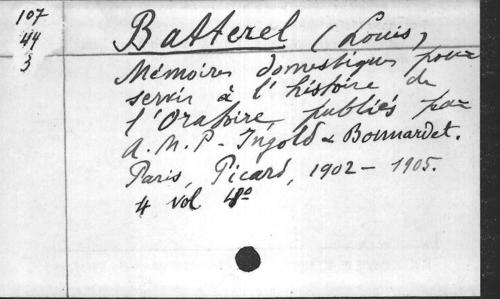 107
44
3
Batterel (Louis)
Mémoires domestiques pour
servir à l'histoire de
l'Oratoire, publiés par
A.M.P. Ingold & Bonnardet.
Paris, Picard, 1902-1905.
4 vol 8°